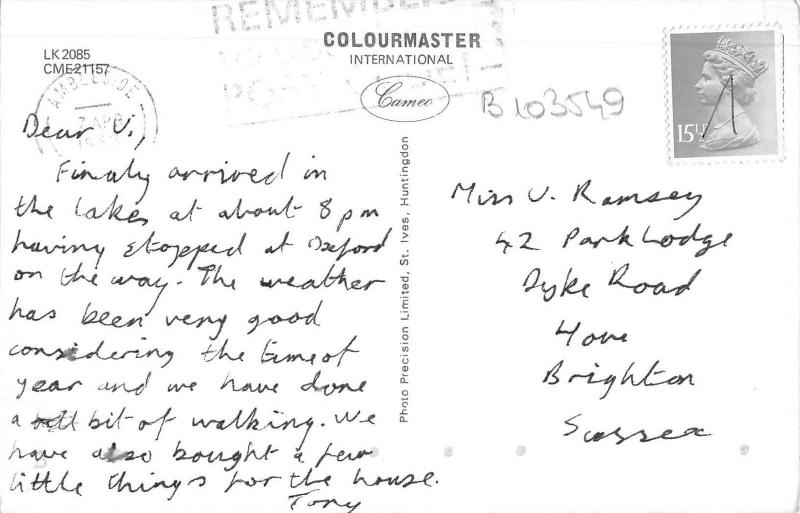 REMEMBER
LK 2085
CME21157
COLOURMASTER
INTERNATIONAL
Cameo
AMBLESIDE
7 APR
B103549
15½P
Dear V.,
Finaly arrived in
the lakes at about 8 pm
having stopped at Oxford
on the way. The weather
has been very good
considering the time of
year and we have done
a bit of walking. We
have also bought a few
little things for the house.
Tony
Photo Precision Limited, St. Ives, Huntingdon
Miss V. Ramsey
42 Park Lodge
Dyke Road
Hove
Brighton
Sussex